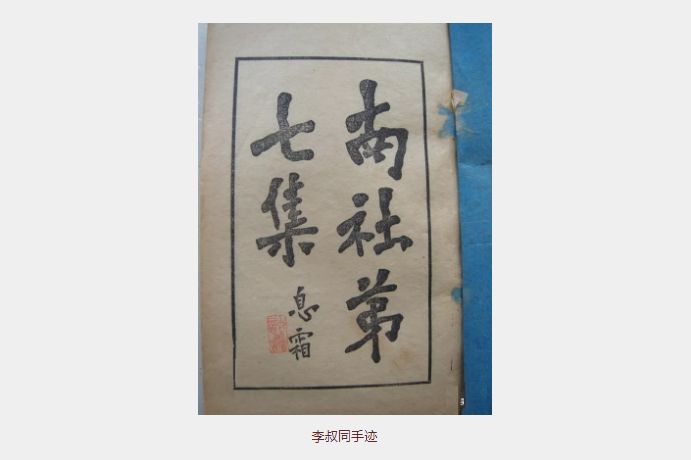 南社第
七集
息霜
李叔同手迹